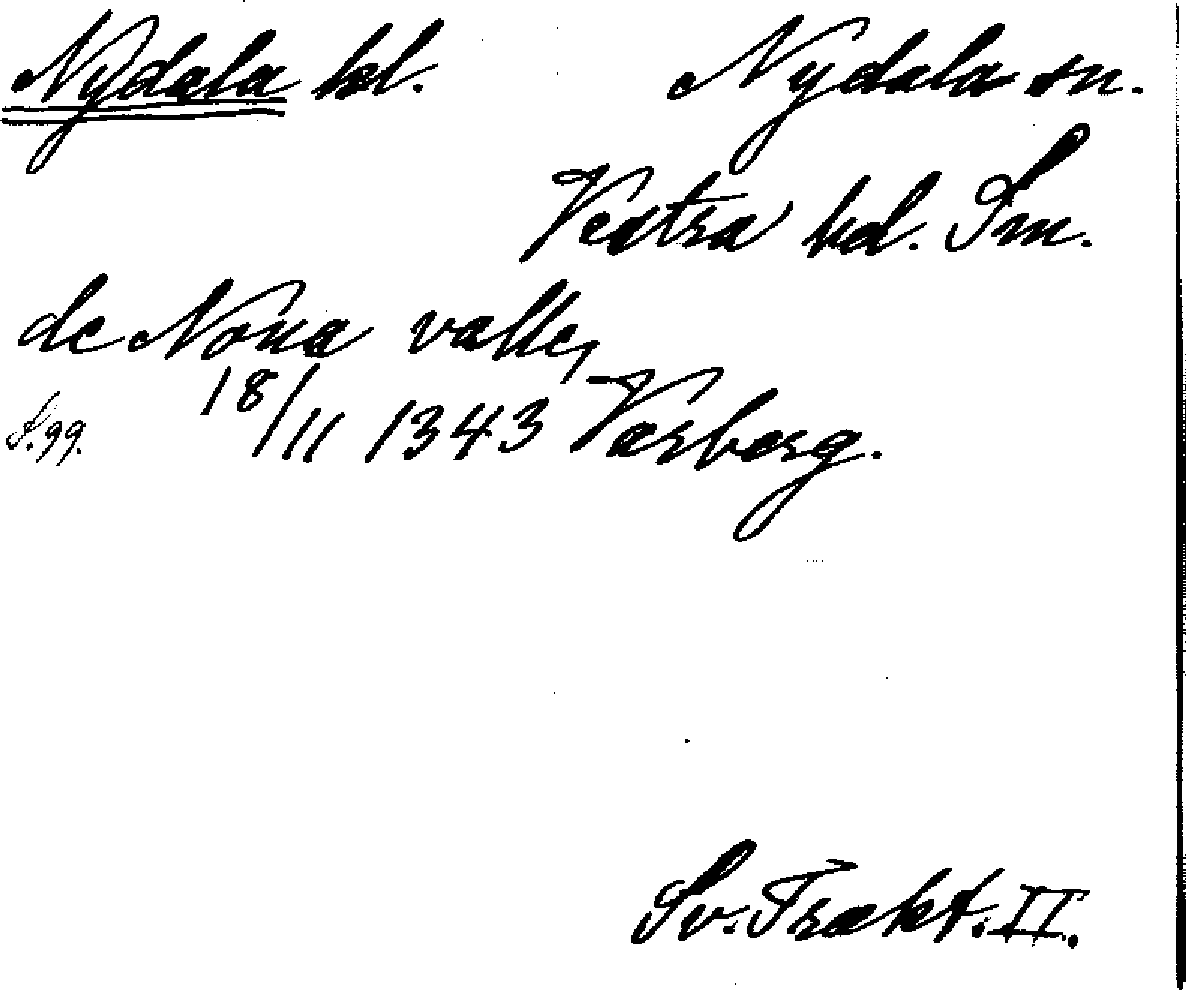 Nydala kl. Nydala sn.
Vestra hd. Sm.
de Noua valle,
18/11 1343 Varberg.
S. 99.
Sv. Trakt. II.